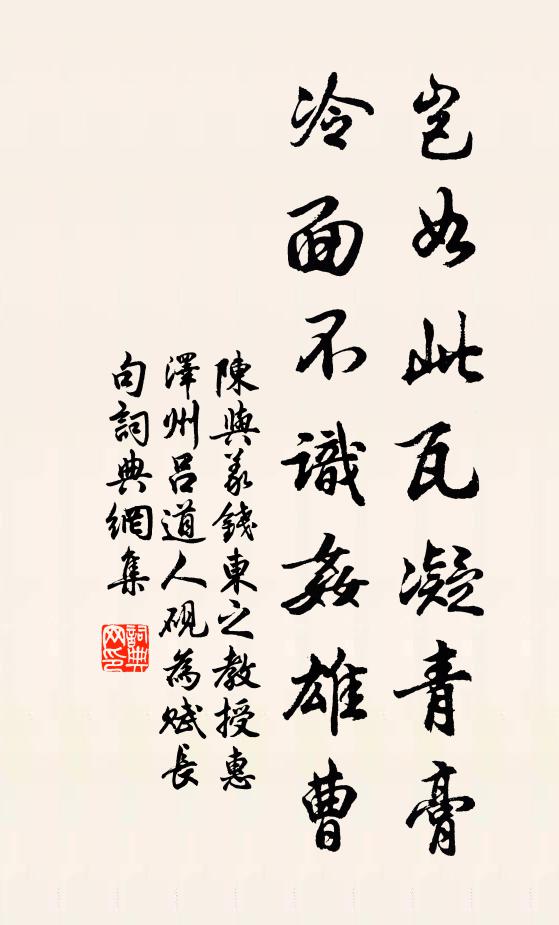 豈如此瓦凝青膏
冷面不識姦雄曹
陳與義錢東之教授惠
澤州呂道人硯為賦長
句詞典網集
詞典
网印